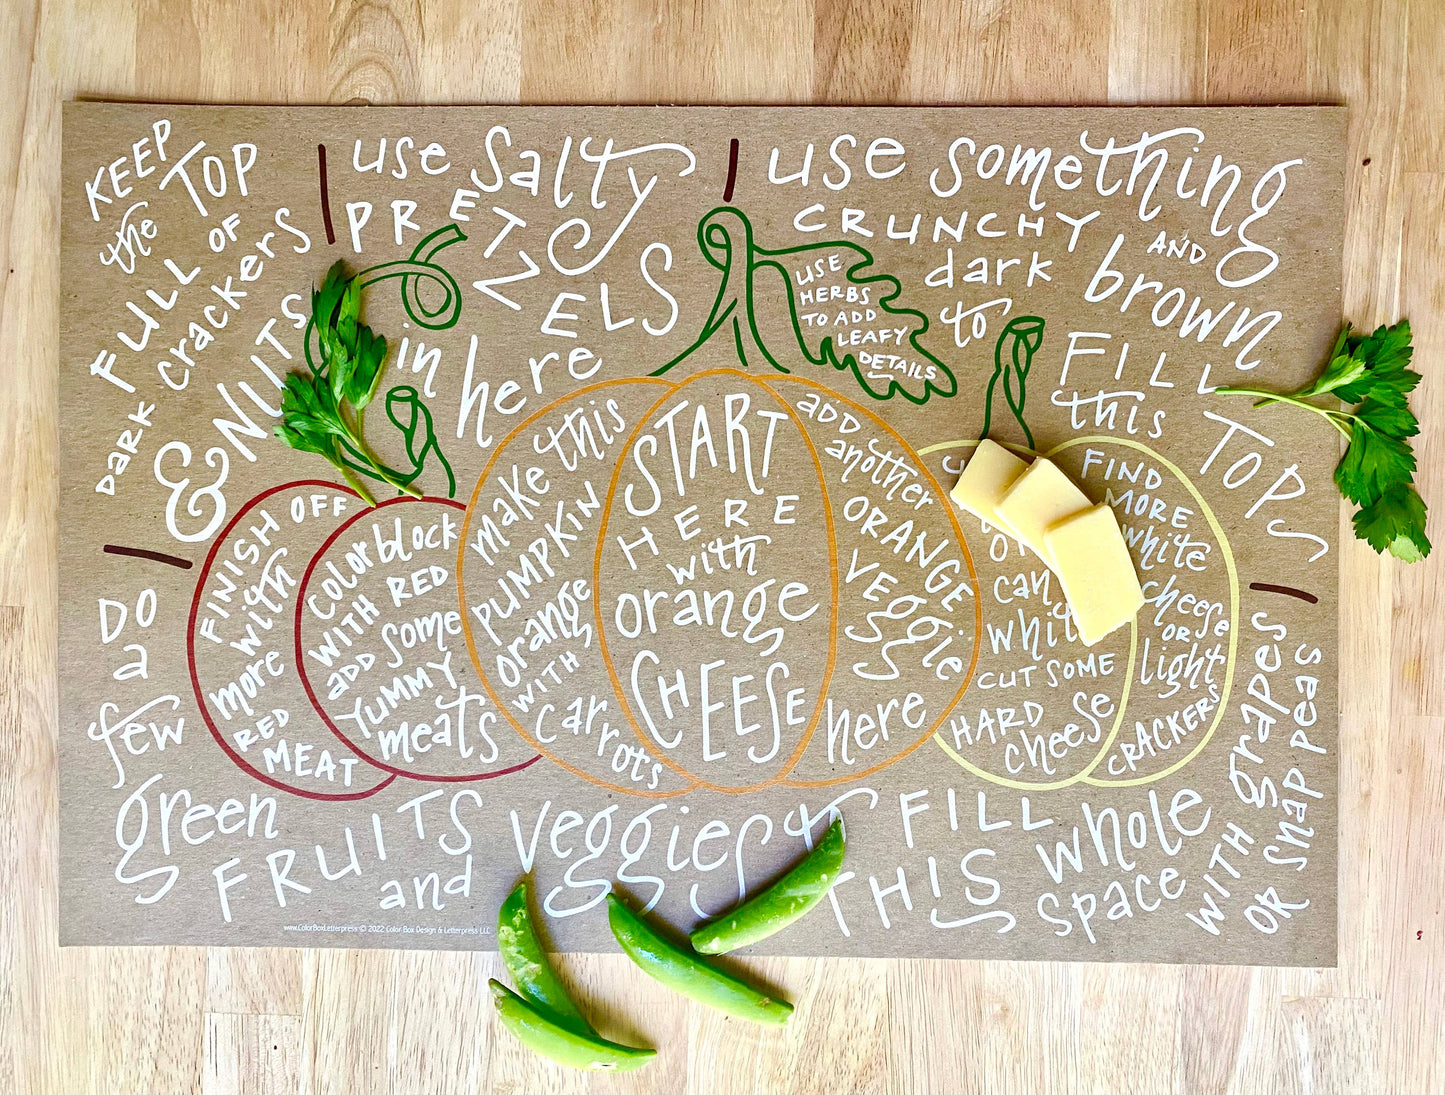 KEEP
the TOP
FULL OF
DARK crackers
& NUTS
use Salty
PRETZELS
in here
use something
CRUNCHY AND
dark to brown
FILL
this TOP
USE
HERBS
TO ADD
LEAFY
DETAILS
FINISH OFF
with
more
RED
MEAT
colorblock
WITH RED
ADD some
YUMMY
meats
make this
PUMPKIN
orange
WITH
carrots
START
HERE
with
orange
CHEESE
ADD
another
ORANGE
veggie
here
can
CUT SOME
HARD
cheese
FIND
MORE
white
cheese
OR
light
CRACKERS
DO
a
few
green
FRUITS
and veggies
FILL
THIS whole
space
WITH grapes
OR snap peas
www.ColorBoxLetterpress © 2022 Color Box Design & Letterpress LLC